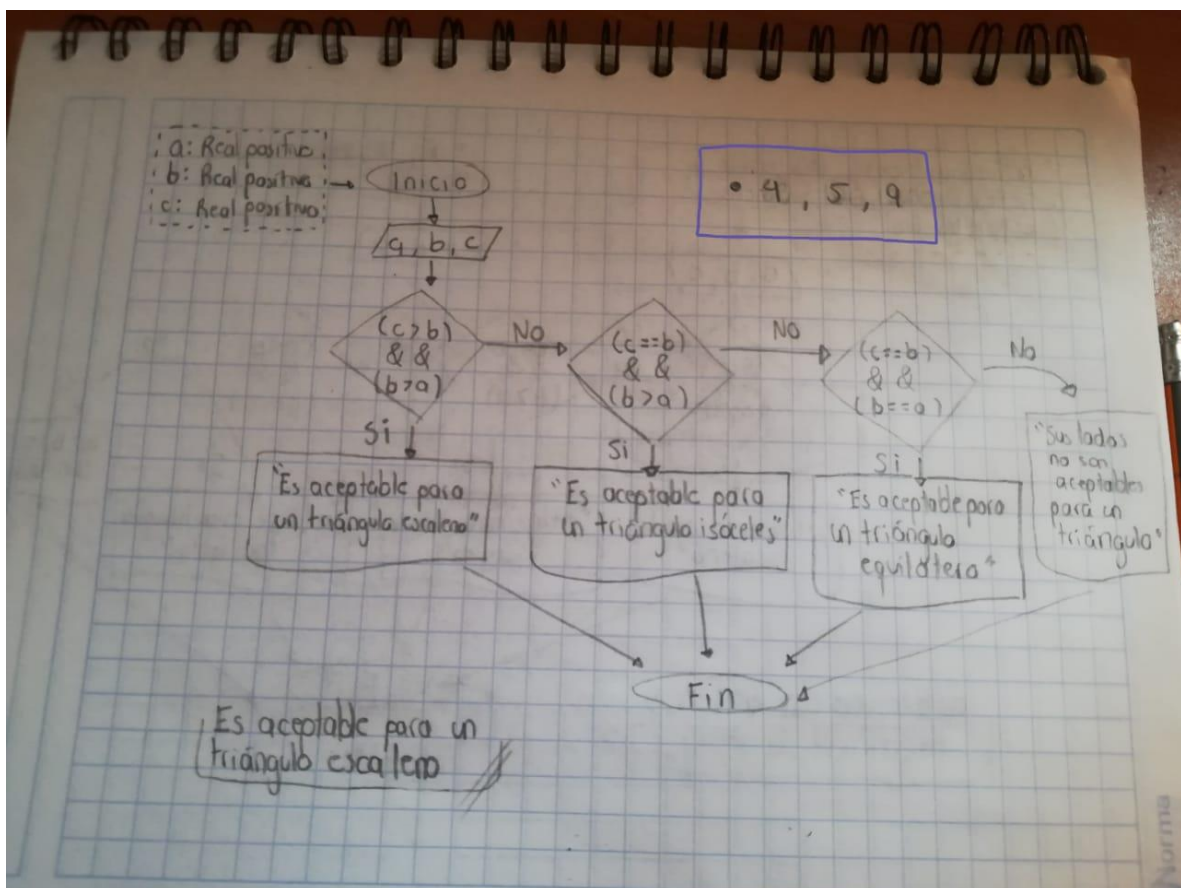 a: Real positivo
b: Real positivo
c: Real positivo
Inicio
a, b, c
• 4, 5, 9
(c>b)
& &
(b>a)
No
(c==b)
& &
(b>a)
NO
(c==b)
& &
(b==a)
No
Si
"Es aceptable para
un triángulo escaleno"
Si
"Es aceptable para
un triángulo isóceles"
Si
"Es aceptable para
un triángulo
equilátero"
"Sus lados
no son
aceptables
para un
triángulo"
Fin
Es aceptable para un
triángulo escaleno
Norma